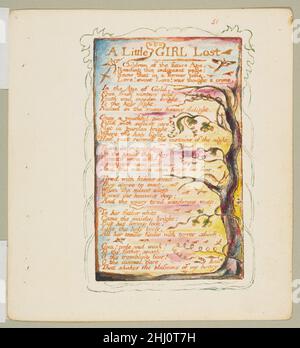 51
A Little GIRL Lost
Children of the future Age,
Reading this indignant page:
Know that in a former time,
Love! sweet Love! was thought a crime.
In the Age of Gold,
Free from winters cold:
Youth and maiden bright,
To the holy light,
Naked in the sunny beams delight.
Once a youthful pair
Fill'd with softest care:
Met in garden bright,
Where the holy light,
Had just removd the curtains of the night.
Tired with kisses sweet
They agree to meet,
When the silent sleep
Waves o'er heavens deep:
And the weary tired wanderers weep.
To her father white
Came the maiden bright:
But his loving look,
Like the holy book,
All her tender limbs with terror shook.
Ona! pale and weak!
To thy father speak:
O the trembling fear!
O the dismal care!
That shakes the blossoms of my hoary hair